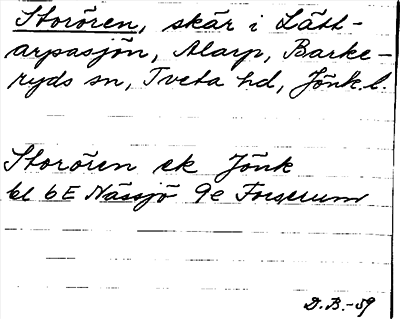 Storören, skär i Lätt-
arpasjön, Alarp, Barke-
ryds sn, Tveta hd, Jönk. l.
Storören ek Jönk
bl 6E Nässjö 9e Forserum
D.B.-59